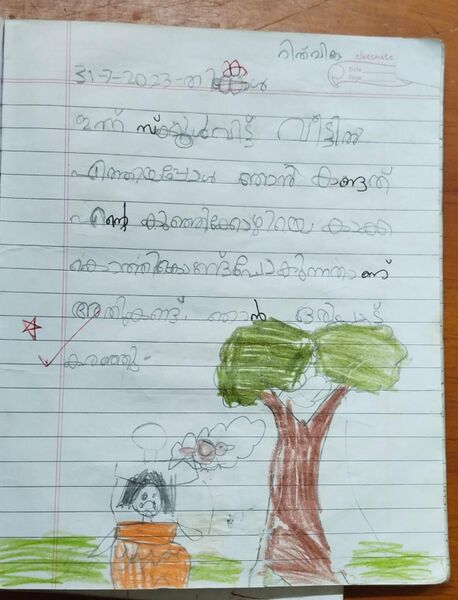 റിത്വിക
classmate
Date
Page
31-7-2023-തിങ്കൾ
ഇന്ന് സ്കൂൾവിട്ട് വീട്ടിൽ
എത്തിയപ്പോൾ ഞാൻ കണ്ടത്
എൻ്റെ കുഞ്ഞിക്കോഴിയെ കാക്ക
കൊത്തികൊണ്ട്പോകുന്നതാണ്
അത്കണ്ട് ഞാൻ ഒരുപാട്
കരഞ്ഞു.